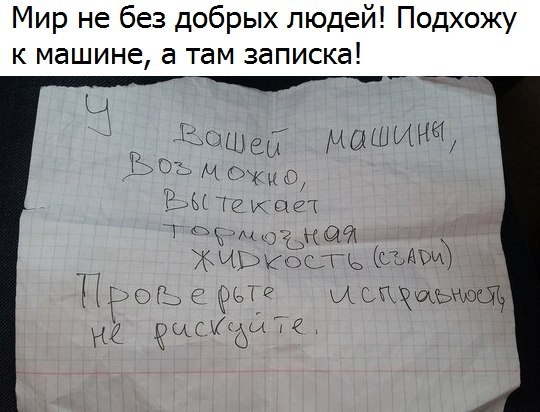 Мир не без добрых людей! Подхожу
к машине, а там записка!
У Вашей машины,
Возможно,
Вытекает
тормозная
жидкость (сзади)
Проверьте исправность,
не рискуйте.